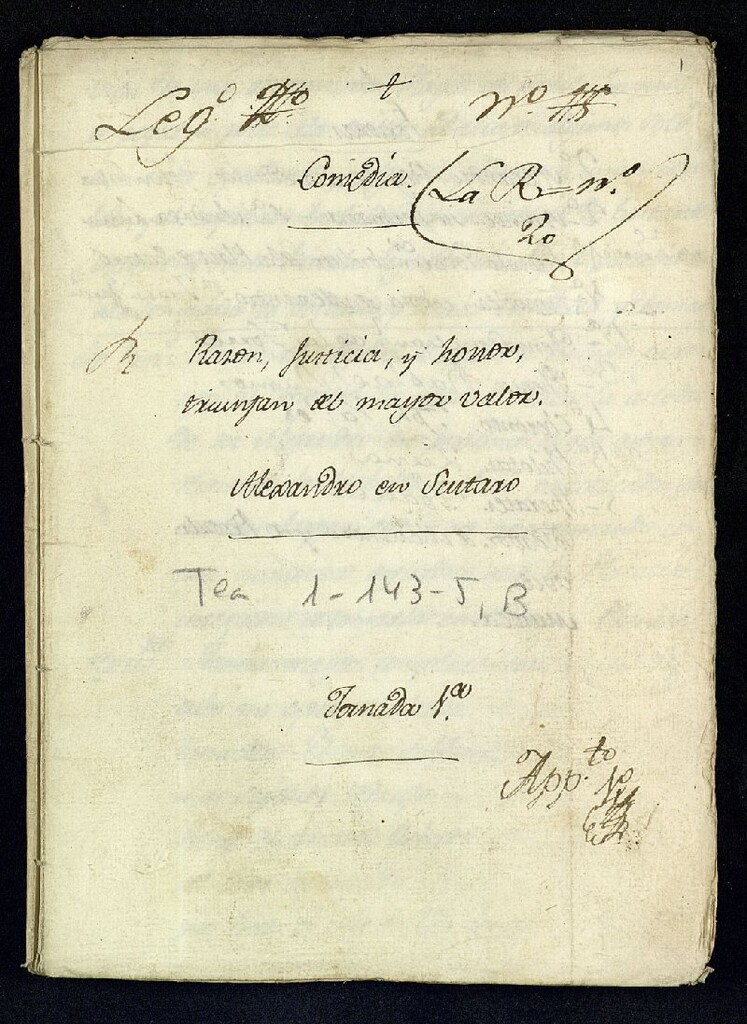 Leg.º
†
nº
Comedia.
(La R=nº.
20
Razon, Justicia, y honor,
triunfan del mayor valor.
Alexandro en Scutaro
Tea 1-143-5, B
Jornada 1.ª
App.to 1º